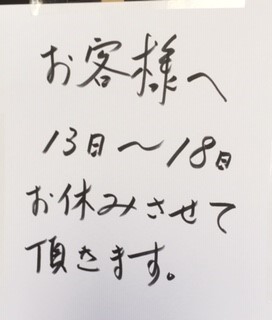 お客様へ
13日〜18日
お休みさせて
頂きます。